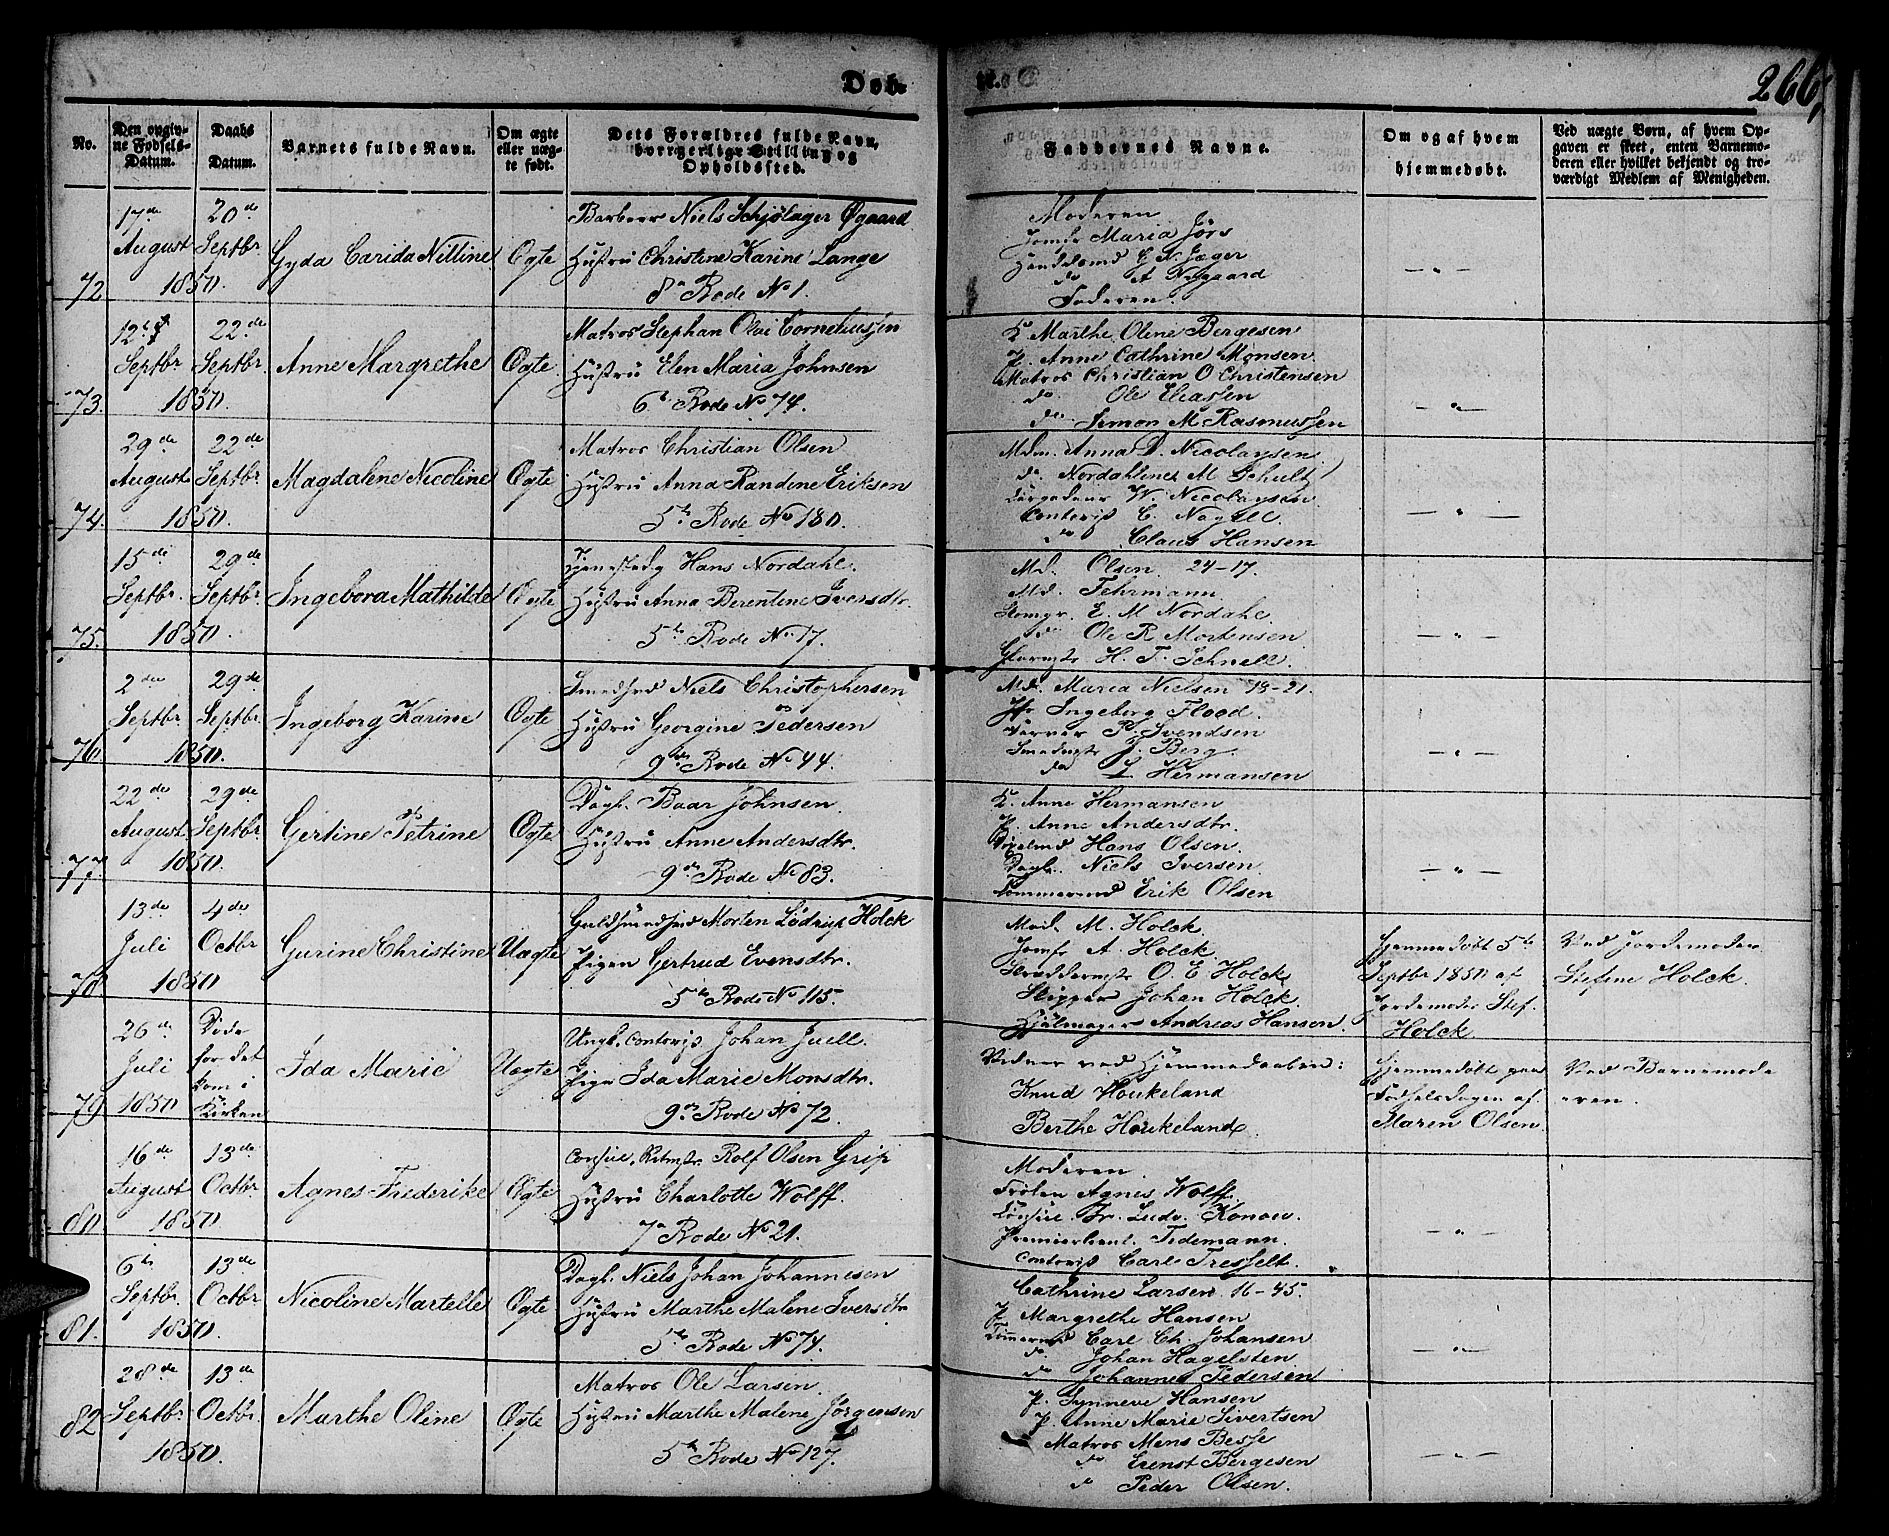 Døb.
266,
No.
Den opgiv-
ne Fødsels-
Datum.
Daabs
Datum.
Barnets fulde Navn.
Om ægte
eller uæg-
te født.
Dets Forældres fulde Navn,
borgerlige Stilling og
Opholdssted.
Faddernes Navne.
Om og af hvem
hjemmedøbt.
Ved uægte Børn, af hvem Op-
gaven er skeet, enten Barnemo-
deren eller hvilket bekjendt og tro-
værdigt Medlem af Menigheden.
72
17de August 1850.
20de Septbr
Gyda Carida Nilline
Ægte
Barbeer Niels Schjölager Øgaard
Hustru Christine Karine Lange
8de Rode No 1.
Moderen
Jomfr Maria Jörs
C N. Jæger
do A
Faderen.
— " —
73.
12te Septbr 1850.
22de Septbr.
Anne Margrethe
Ægte
Matros Stephan Olai Corneliussen
Hustru Elen Maria Johnsen
6te Rode No 74.
K. Marthe Oline Bergesen
P. Anne Cathrine Monsen.
Matros Christian O Christensen
do Ole Eliassen
do Simon M Rasmussen
— " —
74.
29de August 1850.
22de Septbr
Magdalene Nicoline
Ægte
Matros Christian Olsen
Hustru Anna Randine Eriksen
5te Rode No 180.
Mdm. Anna D. Nicolaysen
do Nordahline M Schult
W. Nicolaysen
Contorist C. Nagell
do Claus Hansen
— " —
75.
15de Septbr. 1850.
29de Septbr.
Ingebora Mathilde
Ægte
Hans Nordahl.
Hustru Anna Berentine Iversdtr.
5te Rode No 17.
Md. Olsen 24-17.
Md. Fehrmann
E. M Nordahl
do Ole R Mortensen
H. T. Schnell.
— " —
76.
2den Septbr 1850.
29de Septbr.
Ingeborg Karine
Ægte
Smedsvd Niels Christophersen
Hustru Georgine Pedersen
9de Rode No 44.
Md. Maria Nielsen 19-21.
Jfr Ingeborg Flood.
P. Svendsen
J. Berg.
do L. Hermansen
— " —
77.
22de August 1850.
29de Septbr.
Gertine Petrine
Ægte
Dagl. Baar Johnsen.
Hustru Anne Andersdtr.
9de Rode No 83.
K. Anne Hermansen
P. Anne Andersdtr.
Hans Olsen
Dagl. Niels Iversen
Tømmermd Erik Olsen
— " —
78.
13de Juli 1850
4de Octbr
Gurine Christine
Uægte
Guldsmedsvd Morten Lödvig Holck
Pigen Gertrud Evensdtr.
5te Rode No 115.
Mad. M. Holck.
Jomfr A. Holck.
Skræddermstr O. E Holck
Skipper Johan Holck.
Andreas Hansen.
Hjemmedøbt 5te
Septbr 1850 af
Jordemoder Stef.
Holck
Ved Jordemoder
Stefine Holck.
79
26de Juli 1850
Døde
før det
kom i
Kirken
Ida Marie
Uægte
Ungk. contorist Johan Juell.
Pige Ida Marie Monsdtr.
9de Rode No 72.
Vidner ved Hjemmedaaben:
Knud Houkeland
Berthe Houkeland.
Hjemmedøbt paa
Fødselsdagen af
Maren Olsen
Ved Barnemode
eren.
80.
16de August 1850
13de Octbr
Agnes Frederike
Ægte
Consul, Ritmstr. Rolf Olsen Grip
Hustru Charlotte Wolff.
7de Rode No 21.
Moderen
Frøken Agnes Wolff.
Consul. Fr. Ludv. Konow.
Premierlieut. Tidemann.
Contorist Carl Tresselt.
— " —
81.
6te Septbr. 1850.
13de Octbr
Nicoline Martelle
Ægte
Dagl. Niels Johan Johannesen
Hustru Marthe Malene Iversdtr
5te Rode No 74.
Cathrine Larsen 16-45.
P. Margrethe Hansen
Tømmermd Carl Ch. Johansen
do Johan Hagelsten
do Johannes Pedersen
— " —
82
28de Septbr 1850.
13de Octbr
Marthe Oline
Ægte
Matros Ole Larsen.
Hustru Marthe Malene Jørgensen
5te Rode No 127.
P. Synneve Hansen
P. Anne Marie Sivertsen
Matros Mons Besse
do Ernst Bergesen
do Peder Olsen.
— " —